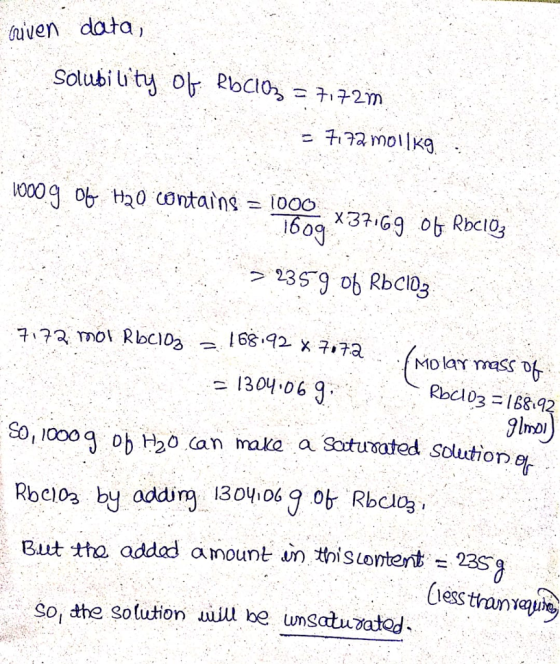 Given data,
Solubility of RbClO3 = 7.72m
= 7.72 mol/kg.
1000g of H2O contains = 1000/160g × 37.6g of RbClO3
= 235g of RbClO3
7.72 mol RbClO3 = 168.92 × 7.72 (Molar mass of
= 1304.06 g. RbClO3 = 168.92
g/mol)
So, 1000g of H2O can make a saturated solution of
RbClO3 by adding 1304.06 g of RbClO3.
But the added amount in this content = 235g
(less than require)
So, the solution will be unsaturated.